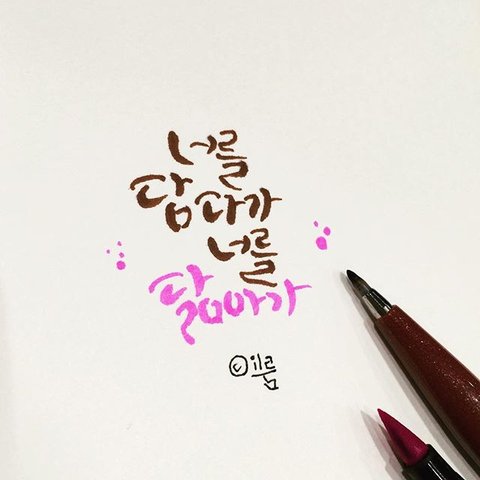 너를
담다가
너를
닮아가
ⓒ이룸